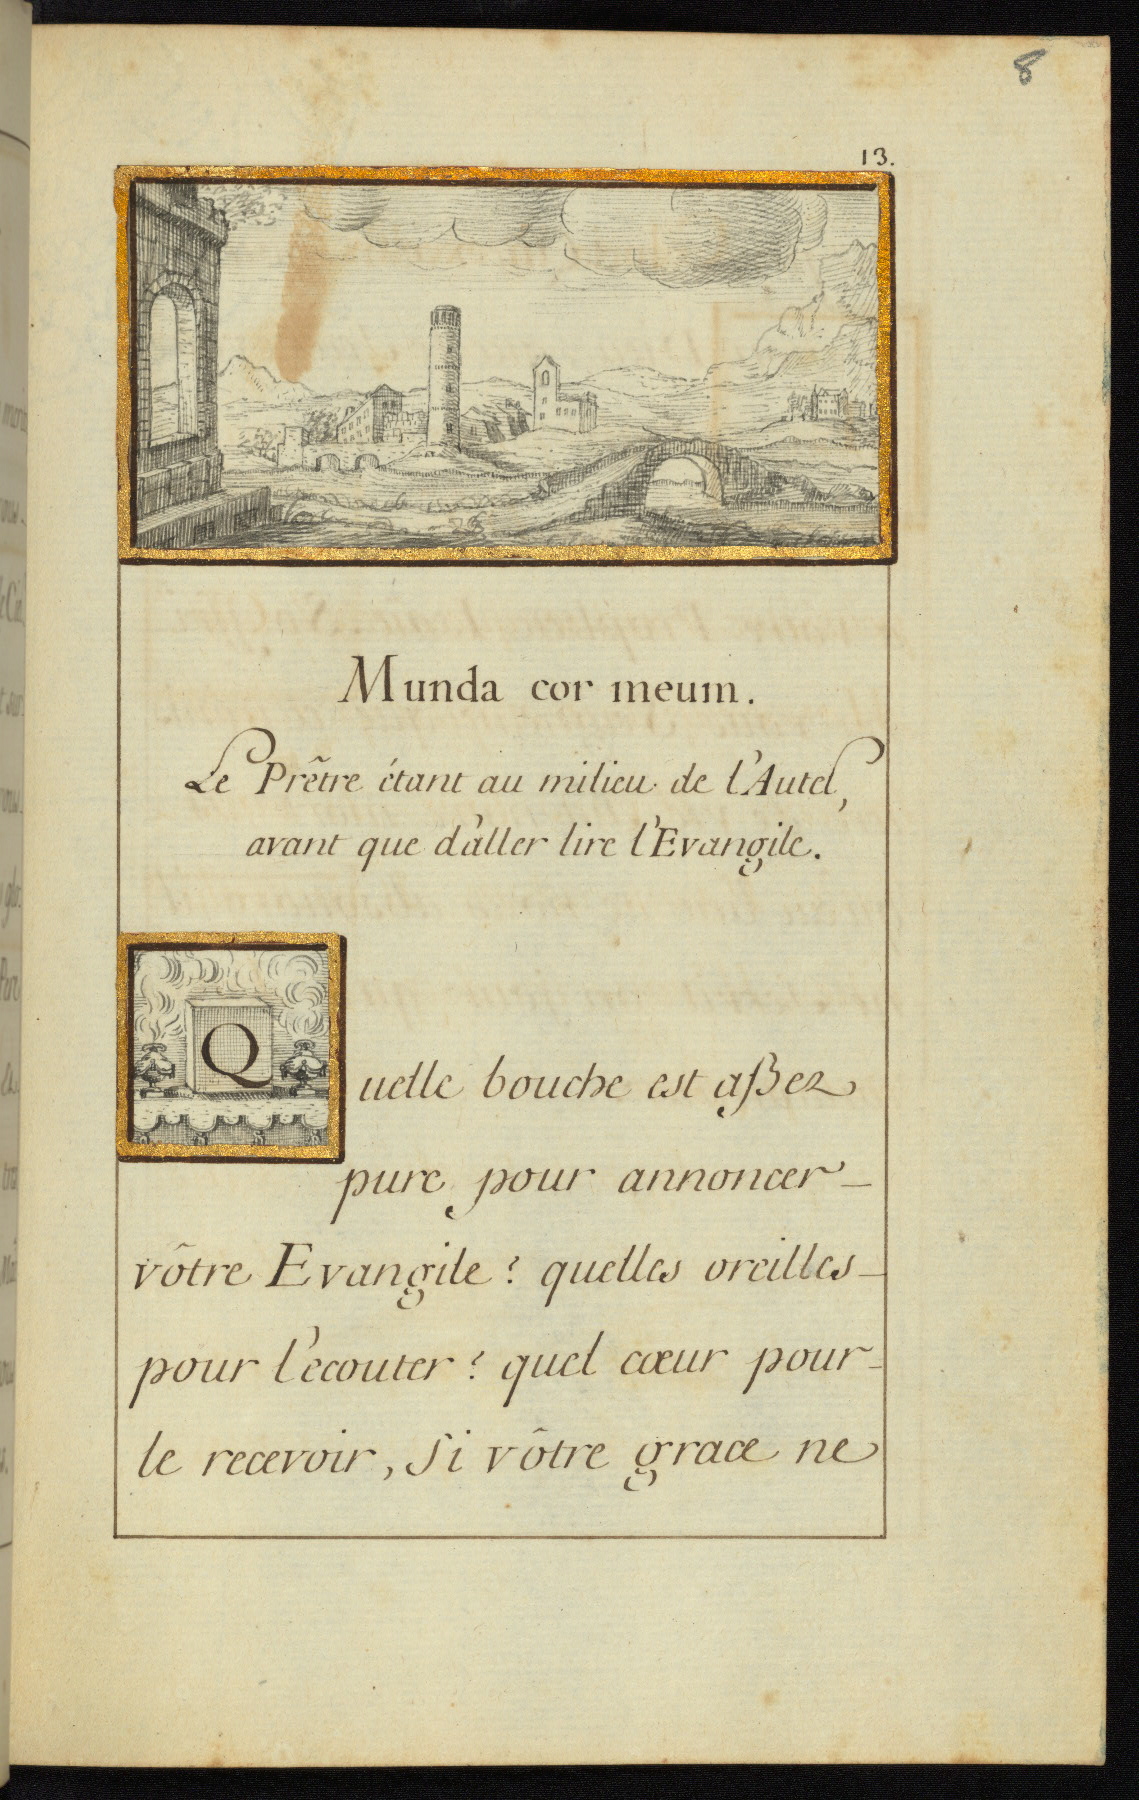 8
13.
Munda cor meum.
Le Prêtre étant au milieu de l'Autel,
avant que d'aller lire l'Evangile.
Quelle bouche est aßez
pure pour annoncer
vôtre Evangile? quelles oreilles
pour l'ecouter? quel cœur pour
le recevoir, si vôtre grace ne